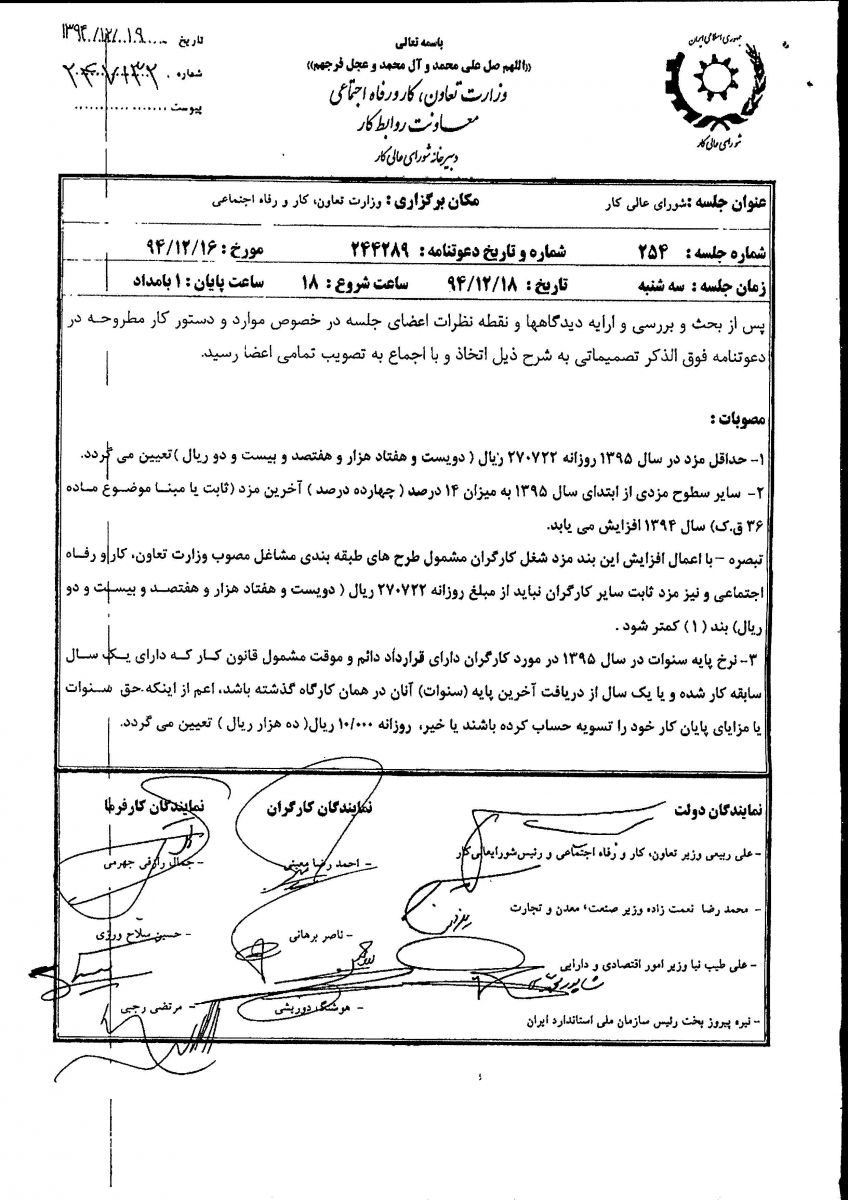 باسمه تعالی
«اللهم صل علی محمد و آل محمد و عجل فرجهم»
وزارت تعاون، کار و رفاه اجتماعی
معاونت روابط کار
دبیرخانه شورای عالی کار
جمهوری اسلامی ایران
شورای عالی کار
تاریخ ۱۳۹۴/۱۲/۱۹
شماره
پیوست
عنوان جلسه :شورای عالی کار مکان برگزاری : وزارت تعاون، کار و رفاه اجتماعی
شماره جلسه : ۲۵۴ شماره و تاریخ دعوتنامه : ۲۴۴۲۸۹ مورخ : ۹۴/۱۲/۱۶
زمان جلسه : سه شنبه تاریخ : ۹۴/۱۲/۱۸ ساعت شروع : ۱۸ ساعت پایان : ۱ بامداد
پس از بحث و بررسی و ارایه دیدگاهها و نقطه نظرات اعضای جلسه در خصوص موارد و دستور کار مطروحه در
دعوتنامه فوق الذکر تصمیماتی به شرح ذیل اتخاذ و با اجماع به تصویب تمامی اعضا رسید.
مصوبات :
۱- حداقل مزد در سال ۱۳۹۵ روزانه ۲۷۰۷۲۲ ریال ( دویست و هفتاد هزار و هفتصد و بیست و دو ریال )تعیین می گردد.
۲- سایر سطوح مزدی از ابتدای سال ۱۳۹۵ به میزان ۱۴ درصد ( چهارده درصد ) آخرین مزد (ثابت یا مبنا موضوع ماده
۳۶ ق.ک) سال ۱۳۹۴ افزایش می یابد.
تبصره – با اعمال افزایش این بند مزد شغل کارگران مشمول طرح های طبقه بندی مشاغل مصوب وزارت تعاون، کار و رفاه
اجتماعی و نیز مزد ثابت سایر کارگران نباید از مبلغ روزانه ۲۷۰۷۲۲ ریال ( دویست و هفتاد هزار و هفتصد و بیست و دو
ریال) بند (۱) کمتر شود .
۳- نرخ پایه سنوات در سال ۱۳۹۵ در مورد کارگران دارای قرارداد دائم و موقت مشمول قانون کار که دارای یک سال
سابقه کار شده و یا یک سال از دریافت آخرین پایه (سنوات) آنان در همان کارگاه گذشته باشد، اعم از اینکه حق سنوات
یا مزایای پایان کار خود را تسویه حساب کرده باشند یا خیر، روزانه ۱۰/۰۰۰ ریال( ده هزار ریال ) تعیین می گردد.
نمایندگان دولت نمایندگان کارگران نمایندگان کارفرما
- علی ربیعی وزیر تعاون، کار و رفاه اجتماعی و رئیس‌شورایعالی‌کار - احمد رضا معینی - جمال رازقی جهرمی
- محمد رضا نعمت زاده وزیر صنعت، معدن و تجارت - ناصر برهانی - حسین سلاح ورزی
- علی طیب نیا وزیر امور اقتصادی و دارایی - هوشنگ دورویشی - مرتضی رجبی
- نیره پیروز بخت رئیس سازمان ملی استاندارد ایران